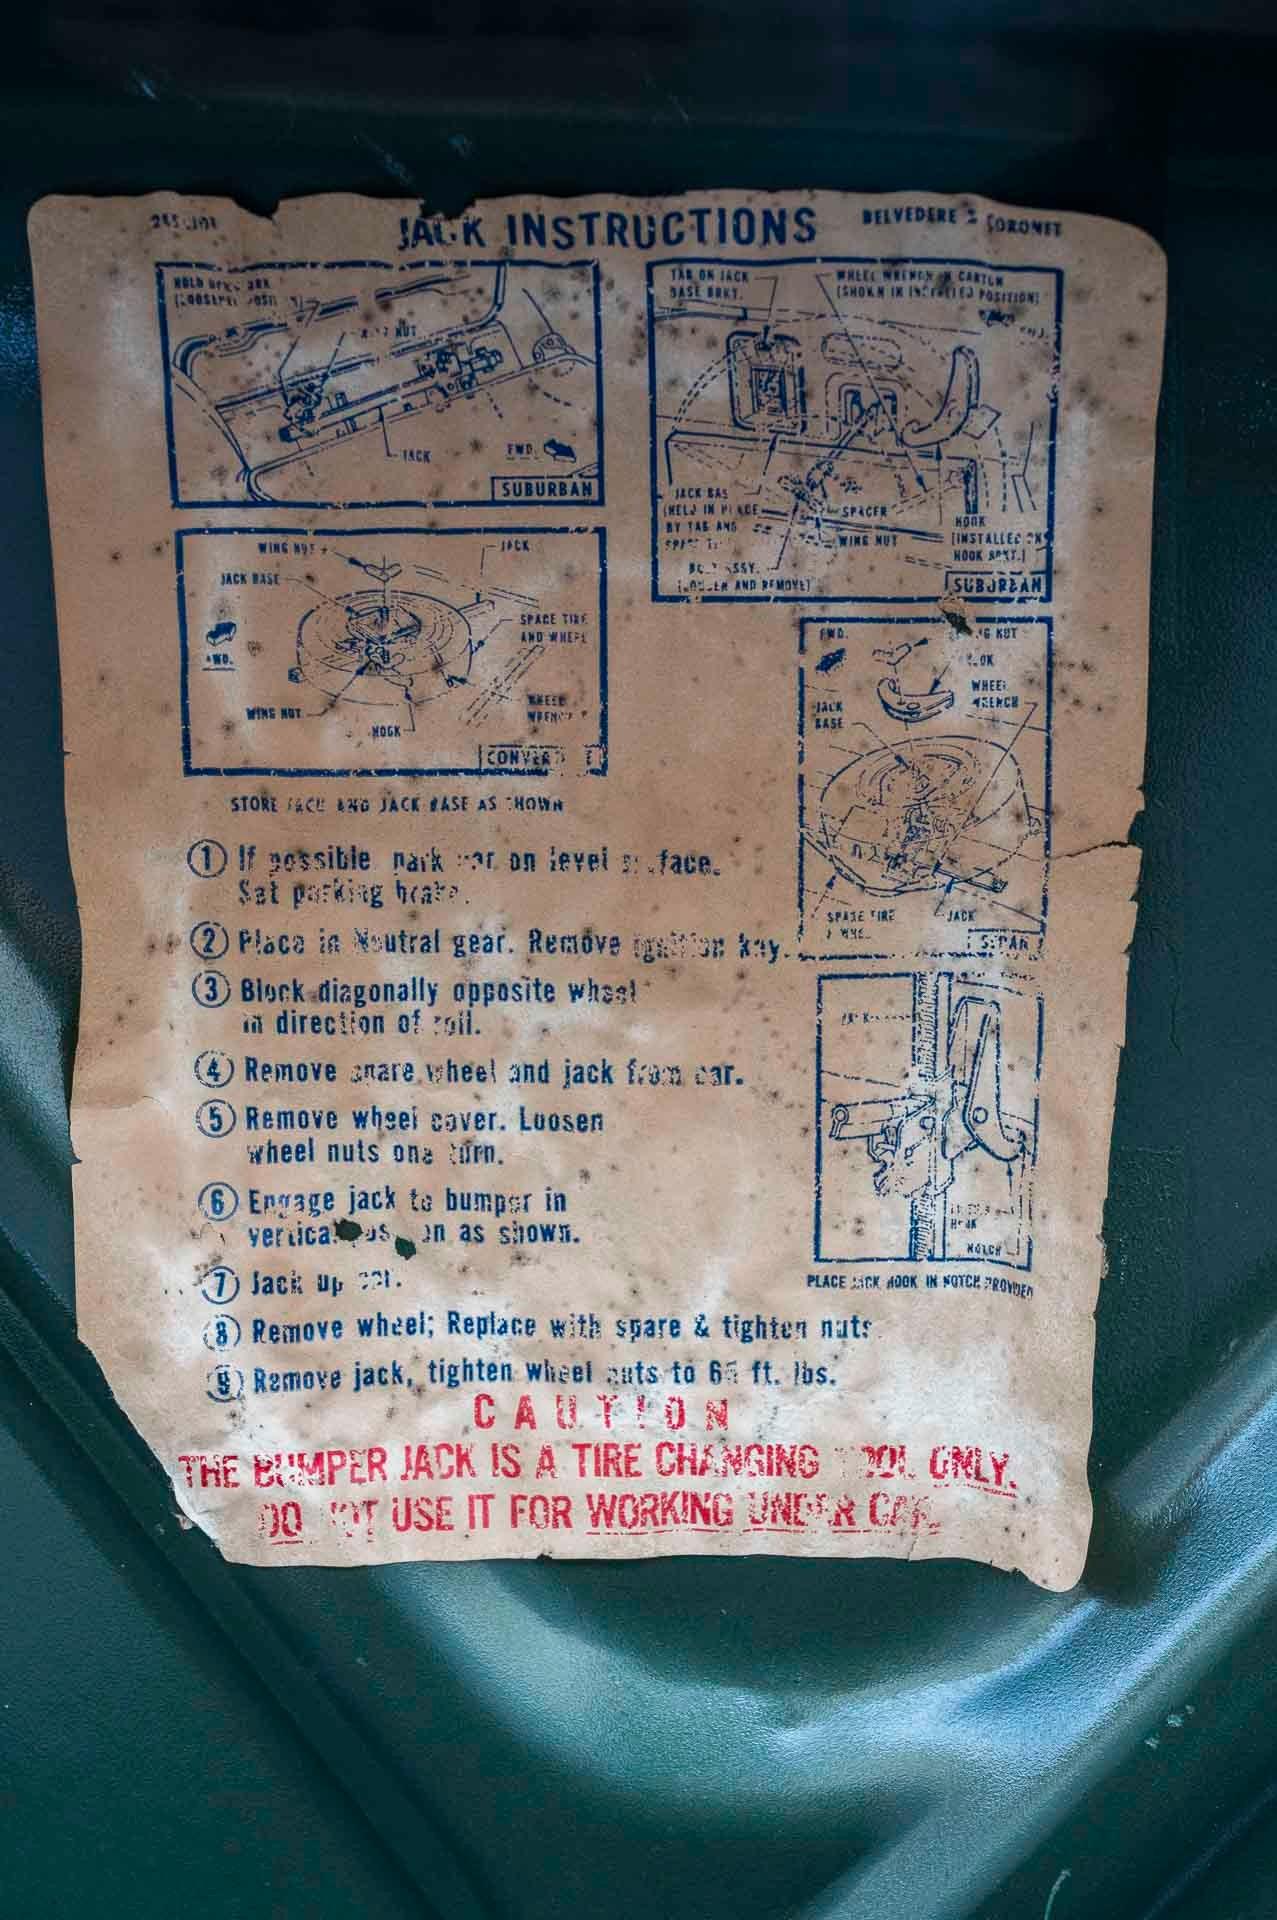 JACK INSTRUCTIONS
BELVEDERE & CORONET
WING NUT
JACK
FWD.
SUBURBAN
TAB ON JACK
BASE BRKT.
WHEEL WRENCH IN CARTON
(SHOWN IN INSTALLED POSITION)
JACK BASE
(HELD IN PLACE
BY TAB AND
SPARE
SPACER
WING NUT
HOOK
[INSTALLED ON
HOOK BRKT.]
BOLT ASSY.
(LOOSEN AND REMOVE)
SUBURBAN
WING NUT
JACK
JACK BASE
SPARE TIRE
AND WHEEL
FWD.
WING NUT
HOOK
WHEEL
WRENCH
CONVERTIBLE
STORE JACK AND JACK BASE AS SHOWN
FWD.
WING NUT
HOOK
WHEEL
WRENCH
JACK
BASE
SPARE TIRE
& WHEEL
JACK
SEDAN
1 If possible park car on level surface.
Set parking brake.
2 Place in Neutral gear. Remove ignition key.
3 Block diagonally opposite wheel
in direction of roll.
4 Remove spare wheel and jack from car.
5 Remove wheel cover. Loosen
wheel nuts one turn.
6 Engage jack to bumper in
vertical position as shown.
7 Jack up car.
8 Remove wheel; Replace with spare & tighten nuts.
9 Remove jack, tighten wheel nuts to 65 ft. lbs.
HOOK
NOTCH
PLACE JACK HOOK IN NOTCH PROVIDED
CAUTION
THE BUMPER JACK IS A TIRE CHANGING TOOL ONLY.
DO NOT USE IT FOR WORKING UNDER CAR.